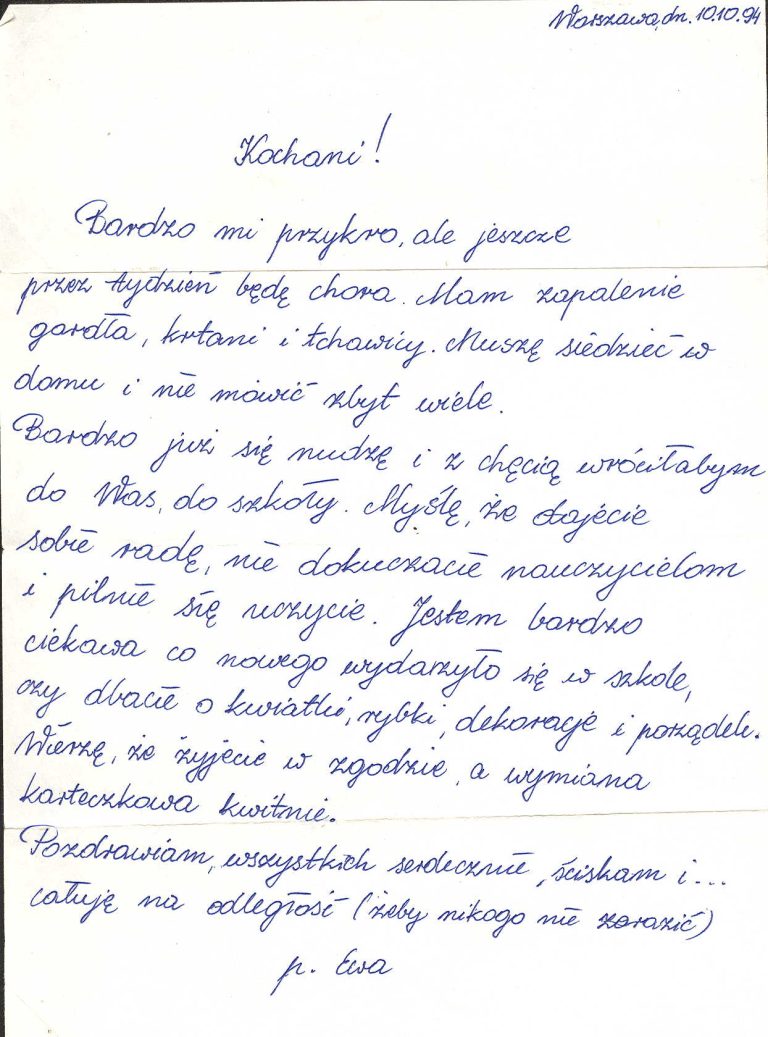 Warszawa, dn. 10.10.94
Kochani!
Bardzo mi przykro, ale jeszcze
przez tydzień będę chora. Mam zapalenie
gardła, krtani i tchawicy. Muszę siedzieć w
domu i nie mówić zbyt wiele.
Bardzo już się nudzę i z chęcią wróciłabym
do Was, do szkoły. Myślę, że dajecie
sobie radę, nie dokuczacie nauczycielom
i pilnie się uczycie. Jestem bardzo
ciekawa co nowego wydarzyło się w szkole,
czy dbacie o kwiatki, rybki, dekoracje i porządek.
Wierzę, że żyjecie w zgodzie, a wymiana
karteczkowa kwitnie.
Pozdrawiam, wszystkich serdecznie, ściskam i...
całuję na odległość (żeby nikogo nie zarazić)
p. Ewa